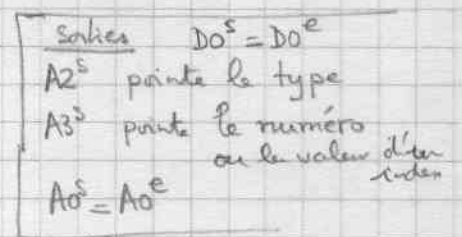 Sorties D0ˢ = D0ᵉ
A2ˢ pointe le type
A3ˢ pointe le numéro
ou la valeur d'un
index
A0ˢ = A0ᵉ